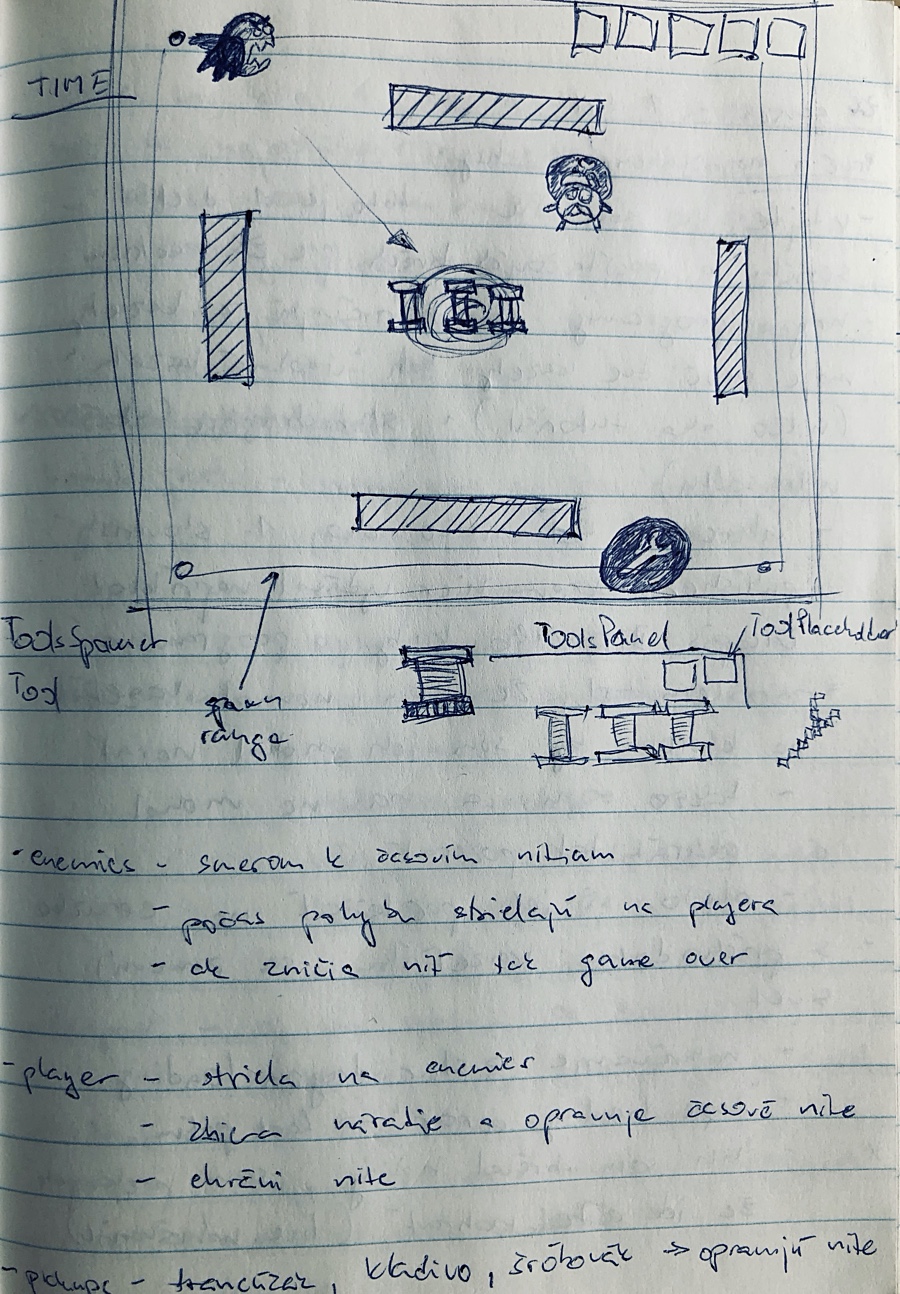 TIME
ToolsSpawner
Tool
ToolsPanel
ToolPlaceholder
spawn
range
• enemies - smerom k časovím nitiam
- počas pohybu strielajú na playera
- ak zničia niť tak game over
- player - striela na enemies
- zbiera náradie a opravuje časové nite
- chráni nite
- pickups - francúzak, kladivo, šróbovák → opravujú nite